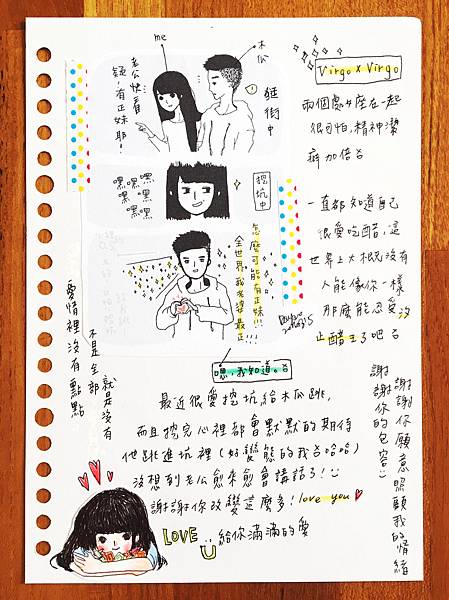 me
木瓜
老公快看
疑!有正妹耶!
逛街中
嘿嘿嘿
嘿嘿嘿
嘿嘿
挖坑中
怎麼可能有正妹!!!
全世界我老婆最正!!
Virgo x Virgo
兩個處女座在一起
很可怕,精神潔
癖加倍
一直都知道自己
很愛吃醋,這
世界上大概沒有
人能像你一樣
那麼能忍受沒
止醋王了吧
謝謝你願意照顧我的情緒
謝謝你的包容:)
嗯,我知道。
不是全部 就是沒有
愛情裡沒有點點點
最近很愛挖坑給木瓜跳,
而且挖完心裡都會默默的期待
他跳進坑裡(好變態的我哈哈)
沒想到老公愈來愈會講話了!
謝謝你改變這麼多!love you
LOVE
給你滿滿的愛